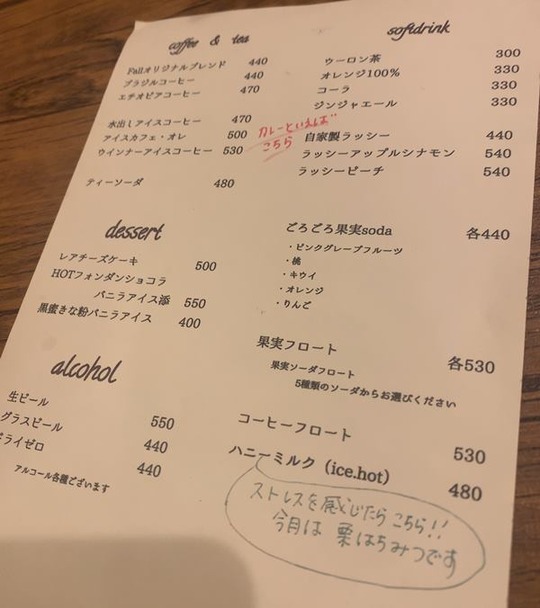 coffee & tea
Fallオリジナルブレンド 440
ブラジルコーヒー 440
エチオピアコーヒー 470
水出しアイスコーヒー 470
アイスカフェ・オレ 500
ウインナーアイスコーヒー 530
ティーソーダ 480
dessert
レアチーズケーキ 500
HOTフォンダンショコラ
バニラアイス添 550
黒蜜きな粉バニラアイス 400
alcohol
生ビール 550
グラスビール 440
ドライゼロ 440
アルコール各種ございます
softdrink
ウーロン茶 300
オレンジ100% 330
コーラ 330
ジンジャエール 330
カレーといえば
こちら
自家製ラッシー 440
ラッシーアップルシナモン 540
ラッシーピーチ 540
ごろごろ果実soda 各440
・ピンクグレープフルーツ
・桃
・キウイ
・オレンジ
・りんご
果実フロート 各530
果実ソーダフロート
5種類のソーダからお選びください
コーヒーフロート 530
ハニーミルク（ice.hot） 480
ストレスを感じたら こちら!!
今月は 栗はちみつです